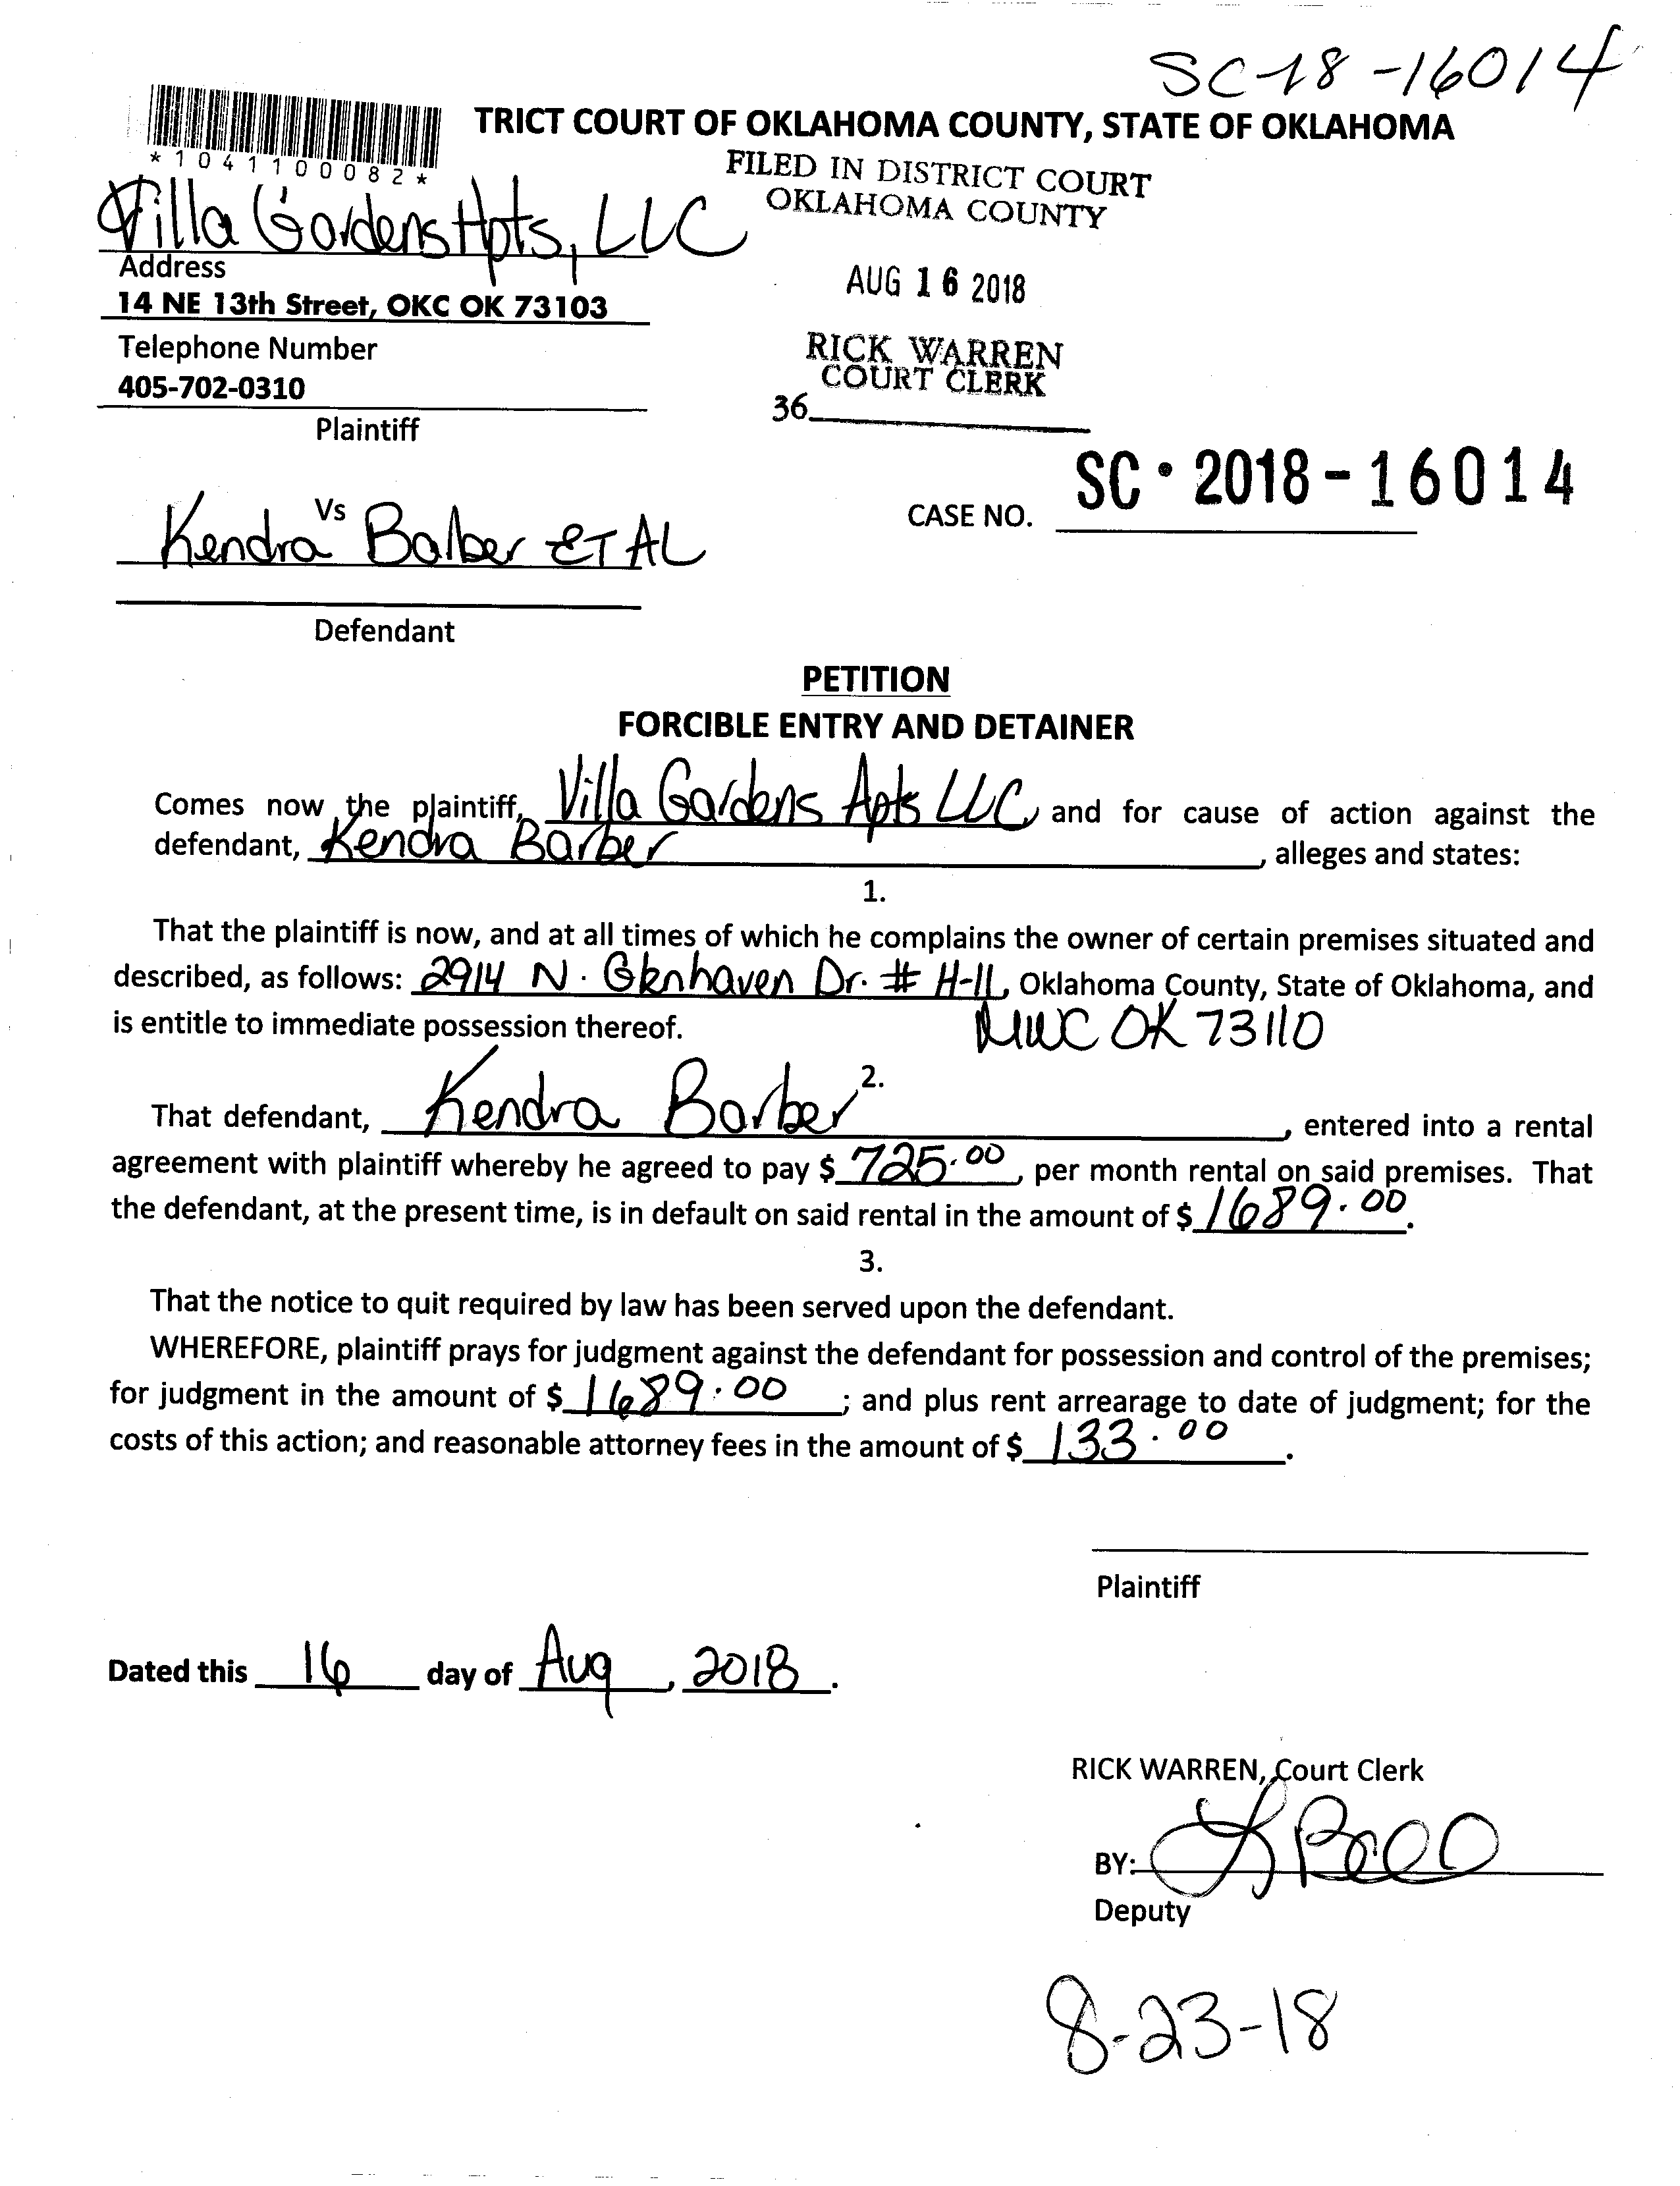 SC-18-16014
TRICT COURT OF OKLAHOMA COUNTY, STATE OF OKLAHOMA
*1041100082*
FILED IN DISTRICT COURT
OKLAHOMA COUNTY
Villa Gardens Apts, LLC
Address
14 NE 13th Street, OKC OK 73103
AUG 16 2018
Telephone Number
405-702-0310
RICK WARREN
COURT CLERK
36
Plaintiff
SC • 2018-16014
CASE NO.
Vs
Kendra Barber ET AL
Defendant
PETITION
FORCIBLE ENTRY AND DETAINER
Comes now the plaintiff, Villa Gardens Apts LLC, and for cause of action against the
defendant, Kendra Barber, alleges and states:
1.
That the plaintiff is now, and at all times of which he complains the owner of certain premises situated and
described, as follows: 2914 N. Glenhaven Dr. # H-11, Oklahoma County, State of Oklahoma, and
is entitle to immediate possession thereof. MWC OK 73110
2.
That defendant, Kendra Barber, entered into a rental
agreement with plaintiff whereby he agreed to pay $ 725.00, per month rental on said premises. That
the defendant, at the present time, is in default on said rental in the amount of $ 1689.00.
3.
That the notice to quit required by law has been served upon the defendant.
WHEREFORE, plaintiff prays for judgment against the defendant for possession and control of the premises;
for judgment in the amount of $ 1689.00; and plus rent arrearage to date of judgment; for the
costs of this action; and reasonable attorney fees in the amount of $ 133.00.
Plaintiff
Dated this 16 day of Aug, 2018.
RICK WARREN, Court Clerk
BY:
Deputy
8-23-18